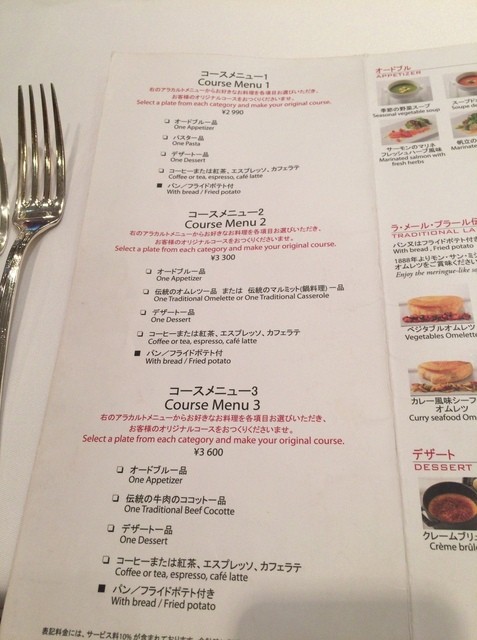 コースメニュー1
Course Menu 1
右のアラカルトメニューからお好きなお料理を各項目お選びいただき、
お客様のオリジナルコースをおつくりくださいませ。
Select a plate from each category and make your original course.
¥2 990
❏ オードブル一品
One Appetizer
❏ パスタ一品
One Pasta
❏ デザート一品
One Dessert
❏ コーヒーまたは紅茶、エスプレッソ、カフェラテ
Coffee or tea, espresso, café latte
■ パン／フライドポテト付
With bread / Fried potato
コースメニュー2
Course Menu 2
右のアラカルトメニューからお好きなお料理を各項目お選びいただき、
お客様のオリジナルコースをおつくりくださいませ。
Select a plate from each category and make your original course.
¥3 300
❏ オードブル一品
One Appetizer
❏ 伝統のオムレツ一品 または 伝統のマルミット(鍋料理)一品
One Traditional Omelette or One Traditional Casserole
❏ デザート一品
One Dessert
❏ コーヒーまたは紅茶、エスプレッソ、カフェラテ
Coffee or tea, espresso, café latte
■ パン／フライドポテト付
With bread / Fried potato
コースメニュー3
Course Menu 3
右のアラカルトメニューからお好きなお料理を各項目お選びいただき、
お客様のオリジナルコースをおつくりくださいませ。
Select a plate from each category and make your original course.
¥3 600
❏ オードブル一品
One Appetizer
❏ 伝統の牛肉のココット一品
One Traditional Beef Cocotte
❏ デザート一品
One Dessert
❏ コーヒーまたは紅茶、エスプレッソ、カフェラテ
Coffee or tea, espresso, café latte
■ パン／フライドポテト付き
With bread / Fried potato
表記料金には、サービス料10%が含まれております。
オードブル
APPETIZER
季節の野菜スープ
Seasonal vegetable soup
スープド
Soupe de
サーモンのマリネ
フレッシュハーブ風味
Marinated salmon with
fresh herbs
帆立の
Marinate
ラ・メール・プラール伝
TRADITIONAL LA
パン又はフライドポテト付き
With bread , Fried potato
1888年よりモン・サン・ミシ
オムレツをご賞味ください
Enjoy the meringue-like so
ベジタブルオムレツ
Vegetables Omelette
カレー風味シーフ
オムレツ
Curry seafood Om
デザート
DESSERT
クレームブリュ
Crème brûle